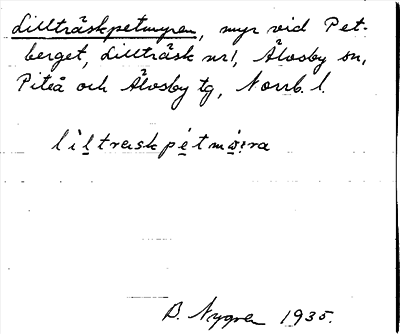 Lillträskpetmyren, myr vid Pet-
berget, Lillträsk nr 1, Älvsby sn,
Piteå och Älvsby tg, Norrb. l.
lìltraskpétmø̀ra
B. Nygren 1935.